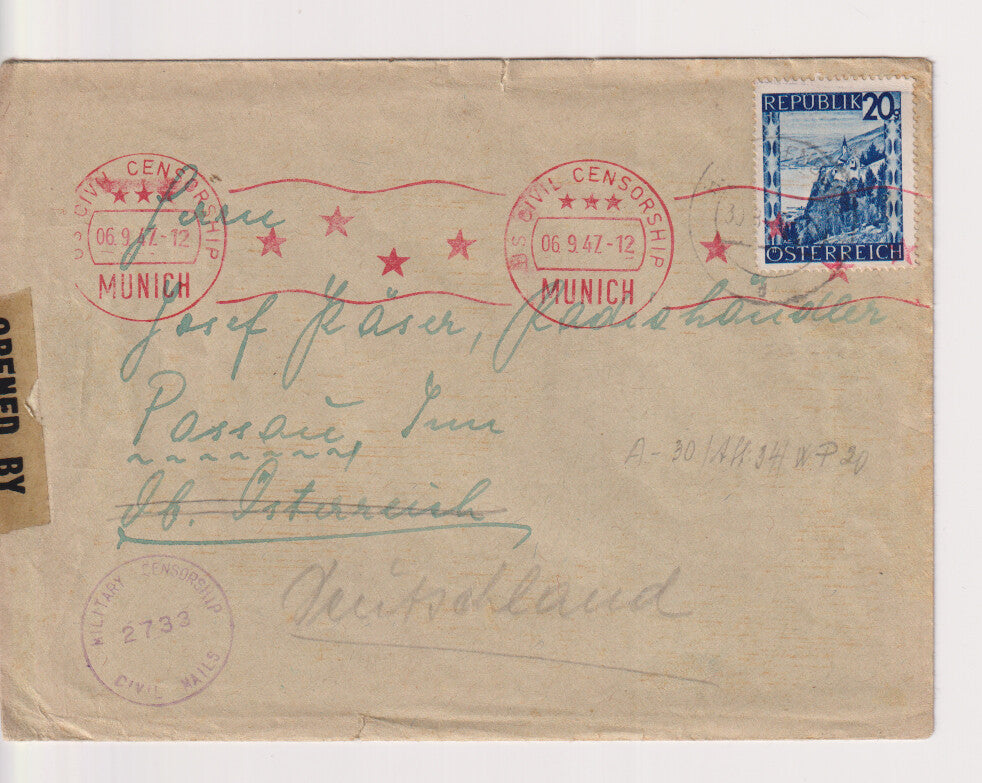 REPUBLIK 20g
ÖSTERREICH
US CIVIL CENSORSHIP
06.9.47.-12
MUNICH
US CIVIL CENSORSHIP
06.9.47.-12
MUNICH
Herrn
Josef Käser, Radiohändler
Passau, Inn
Ob. Österreich
Deutschland
OPENED BY
MILITARY CENSORSHIP
2733
CIVIL MAILS